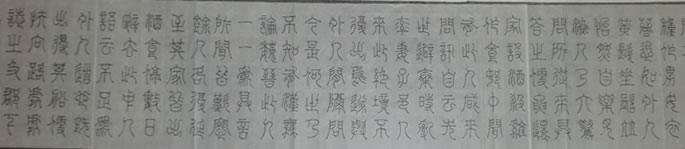 種作男女衣
著悉如外人
黃髮垂髫並
怡然自樂見
漁人乃大驚
問所從來具
答之便要還
家設酒殺雞
作食村中聞
有此人咸來
問訊自云先
世避秦時亂
率妻子邑人
來此絕境不
復出焉遂與
外人間隔問
今是何世乃
不知有漢無
論魏晉此人
一一為具言
所聞皆歎惋
餘人各復延
至其家皆出
酒食停數日
辭去此中人
語云不足為
外人道也既
出得其船便
扶向路處處
誌之及郡下